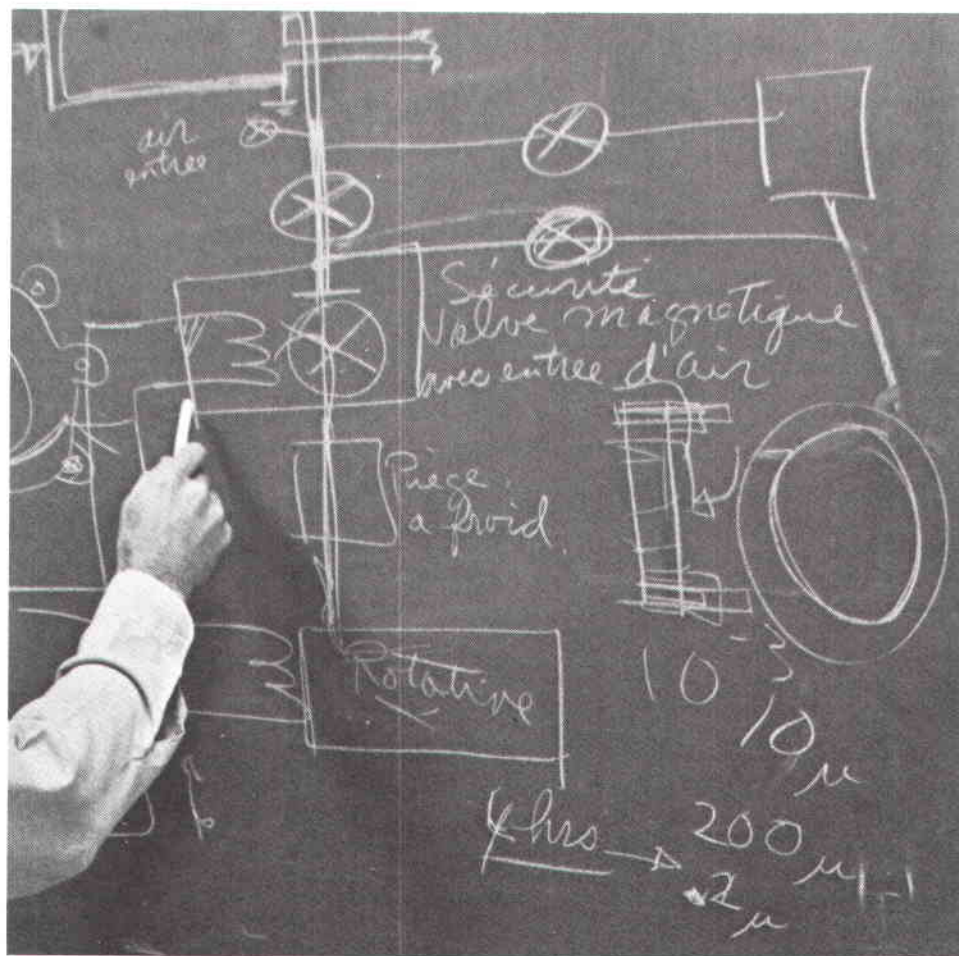 air
entree
Sécurité
Valve magnetique
avec entree d'air
Piège
a froid.
Rotative
10⁻³
10 μ
4 hrs → 200 μ
2 μ